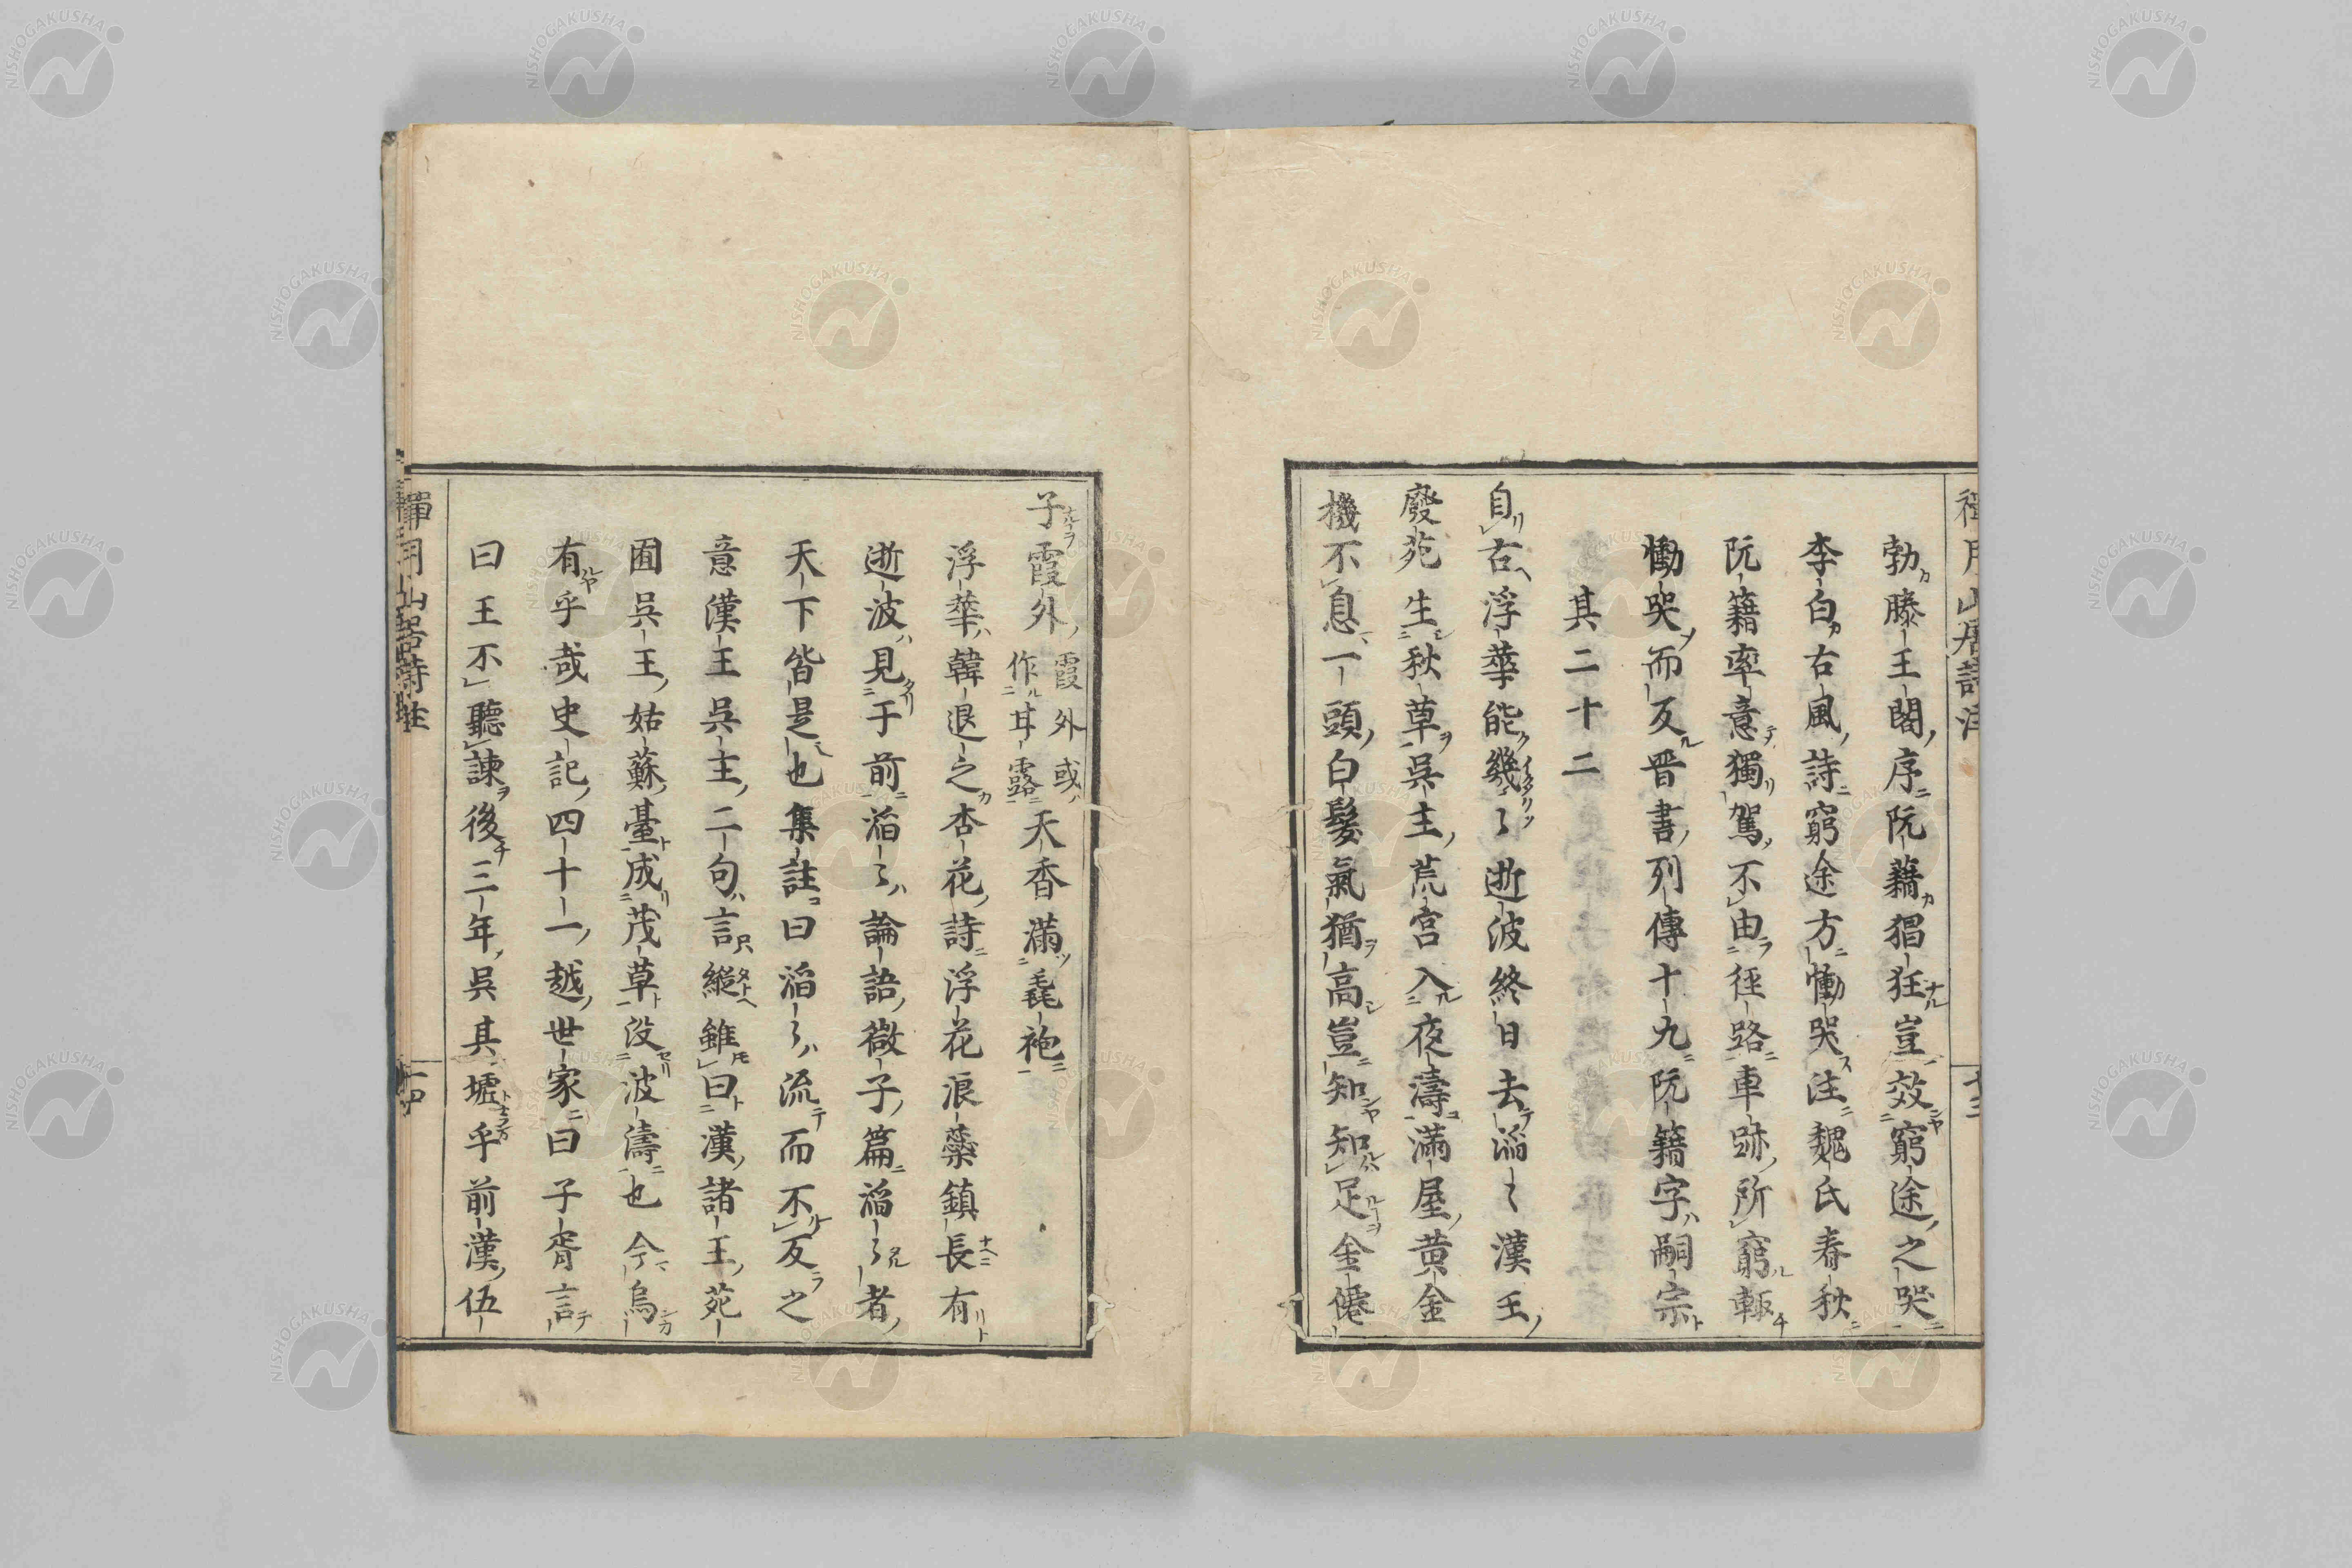 勃滕王閣序阮藉猖狂豈效窮途之哭
李白古風詩窮途方慟哭注魏氏春秋
阮籍率意獨駕不由徑路車跡所窮輙
慟哭而反晋書列傳十九阮籍字嗣宗
其二十二
自古浮華能幾〻逝波終日去滔〻漢王
廢苑生秋草吳主荒宮入夜濤滿屋黄金
機不息一頭白髮氣猶高豈知知足金僊
子霞外霞外或作甘露天香滿毳袍
浮華韓退之杏花詩浮花浪蘂鎮長有
逝波見于前滔〻論語微子篇滔〻者
天下皆是也集註曰滔〻流而不反之
意漢王吳主二句言縱雖曰漢諸王苑
囿吳王姑蘇臺成茂草没波濤也今烏
有乎哉史記四十一越世家曰子胥言
曰王不聽諌後三年吳其墟乎前漢伍